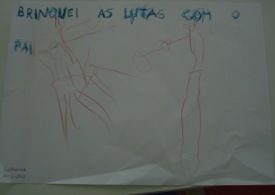 BRINQUEI AS LUTAS COM O
PAI